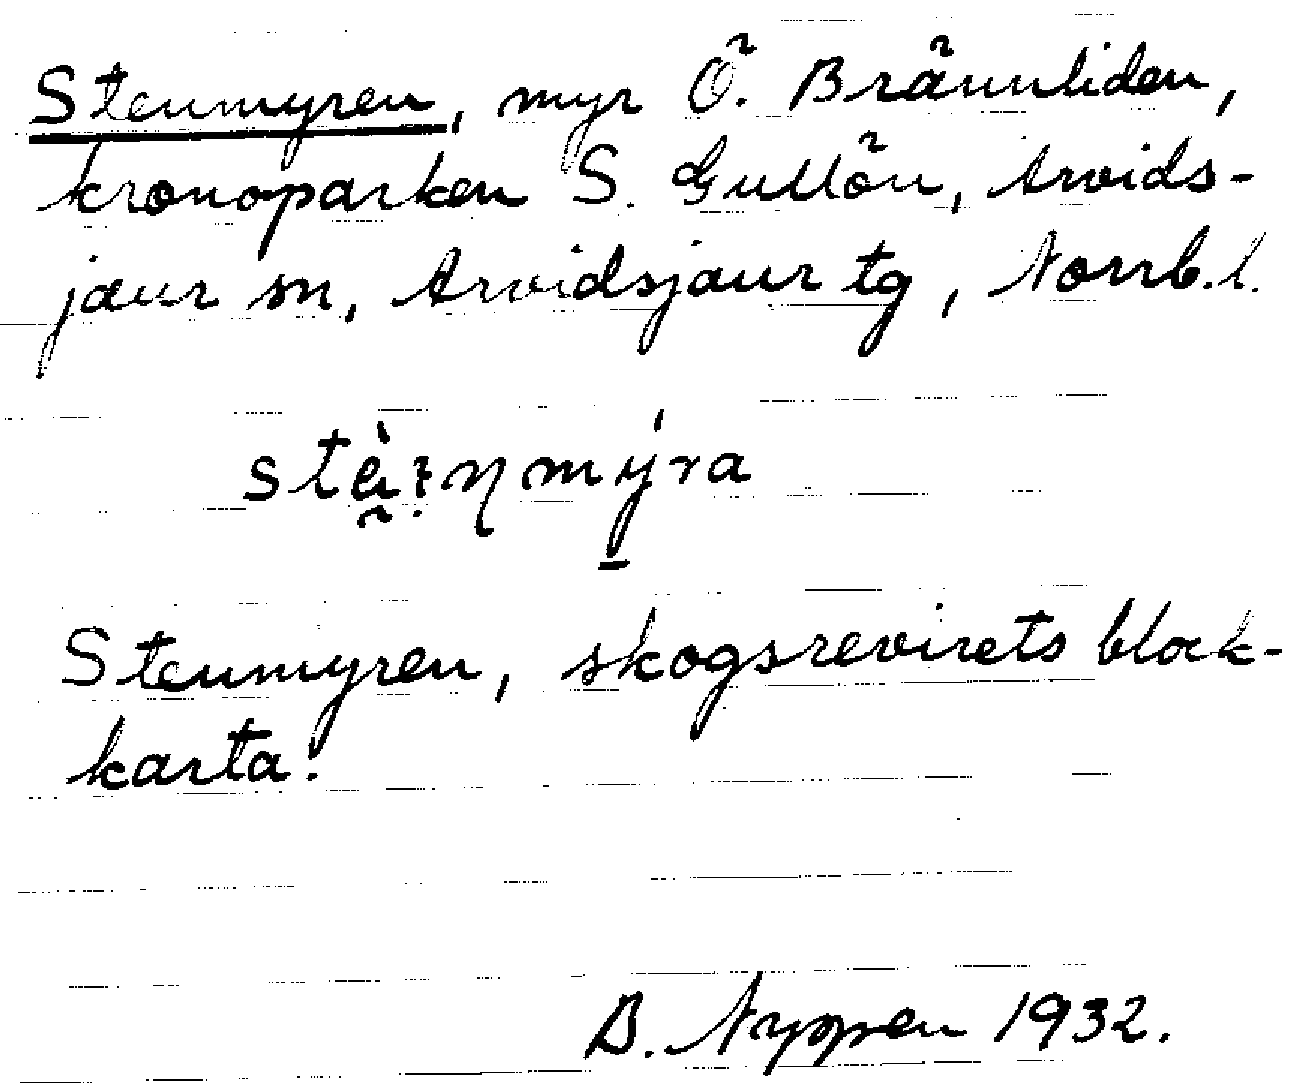 Stenmyren, myr Ö. Brännliden,
kronoparken S. Gullön, Arvids-
jaur sn, Arvidsjaur tg, Norrb. l.
Stenmyren, skogsrevirets block-
karta.
B. Nyppen 1932.